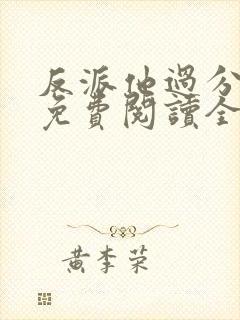 反派他過分
免費閱讀全
黃李荣